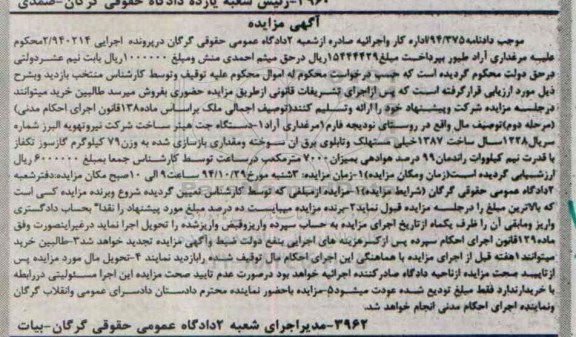 ۳۹۶۰-رئیس شعبه یازده دادگاه حقوقی گرگان-صمدی
آگهی مزایده
موجب دادنامه ۹۴/۳۷۵اداره کار واجرائیه صادره ازشعبه ۲دادگاه عمومی حقوقی گرگان درپرونده اجرایی ۲/۹۴۰۲۱۴محکوم
علیه مرغداری آراد طیور بپرداخت مبلغ۱۵۴۴۴۴۲۹ریال درحق میثم احمدی منش ومبلغ ۱۰۰۰۰۰۰ریال بابت نیم عشردولتی
درحق دولت محکوم گردیده است که حسب درخواست محکوم له اموال محکوم علیه توقیف وتوسط کارشناس منتخب بازدید وبشرح
ذیل مورد ارزیابی قرارگرفته است که پس ازاجرای تشریفات قانونی ازطریق مزایده حضوری بفروش میرسد طالبین خرید میتوانند
درجلسه مزایده شرکت وپیشنهاد خود را ارائه وتسلیم کنند(توصیف اجمالی ملک براساس ماده۱۳۸قانون اجرای احکام مدنی)
(مرحله دوم)توصیف مال واقع در روستای نودیجه فارم(مرغداری آراد۱-دستگاه جت هیتر ساخت شرکت نیروتهویه البرز شماره
سریال۱۲۲۸سال ساخت ۱۳۸۷خیلی مستهلک وتابلوی برق آن سوخته ومقداری بازسازی شده به وزن۷۹ کیلوگرم گازسوز تکفاز
با قدرت نیم کیلووات راندمان۹۹ درصد هوادهی بمیزان۷۰۰۰ مترمکعب درساعت توسط کارشناس جمعا بمبلغ ۶۰۰۰۰۰۰ ریال
ارزشیابی گردیده است(زمان ومکان مزایده)۱-زمان مزایده: ۳شنبه مورخ۹۴/۱۰/۲۹ ساعت۹ الی ۱۰صبح مکان مزایده:دفترشعبه
۲دادگاه عمومی حقوقی گرگان (شرایط مزایده)۱-مزایده ازمبلغی که توسط کارشناس تعیین گردیده شروع وبرنده مزایده کسی است
که بالاترین مبلغ را درجلسه مزایده قبول نماید۲-برنده مزایده میبایست ده درصد مبلغ مورد پیشنهاد را نقدا" بحساب دادگستری
واریز ومابقی آن را ظرف یکماه ازتاریخ اجرای مزایده به حساب سپرده واریزوقبض واریزشده را تحویل اجرا نماید درغیراینصورت وفق
ماده۱۲۹قانون اجرای احکام سپرده پس ازکسرهزینه های اجرایی بنفع دولت ضبط وآگهی مزایده تجدید خواهد شد۳-طالبین خرید
میتوانند۱هفته قبل از اجرای مزایده با هماهنگی این اجرای احکام مال توقیف شده رابازدید نمایند ۴-تحویل مال مورد مزایده پس
ازتایید صحت مزایده ازناحیه دادگاه صادرکننده اجرائیه خواهد بود درصورت عدم تایید صحت مزایده این اجرا مسئولیتی دررابطه
با خریدارندارد فقط مبلغ تودیع شده عودت میشود۵-مزایده باحضور نماینده محترم دادستان دادسرای عمومی وانقلاب گرگان
ونماینده اجرای احکام مدنی انجام خواهد شد.
۳۹۶۲-مدیراجرای شعبه ۲دادگاه عمومی حقوقی گرگان-بیات